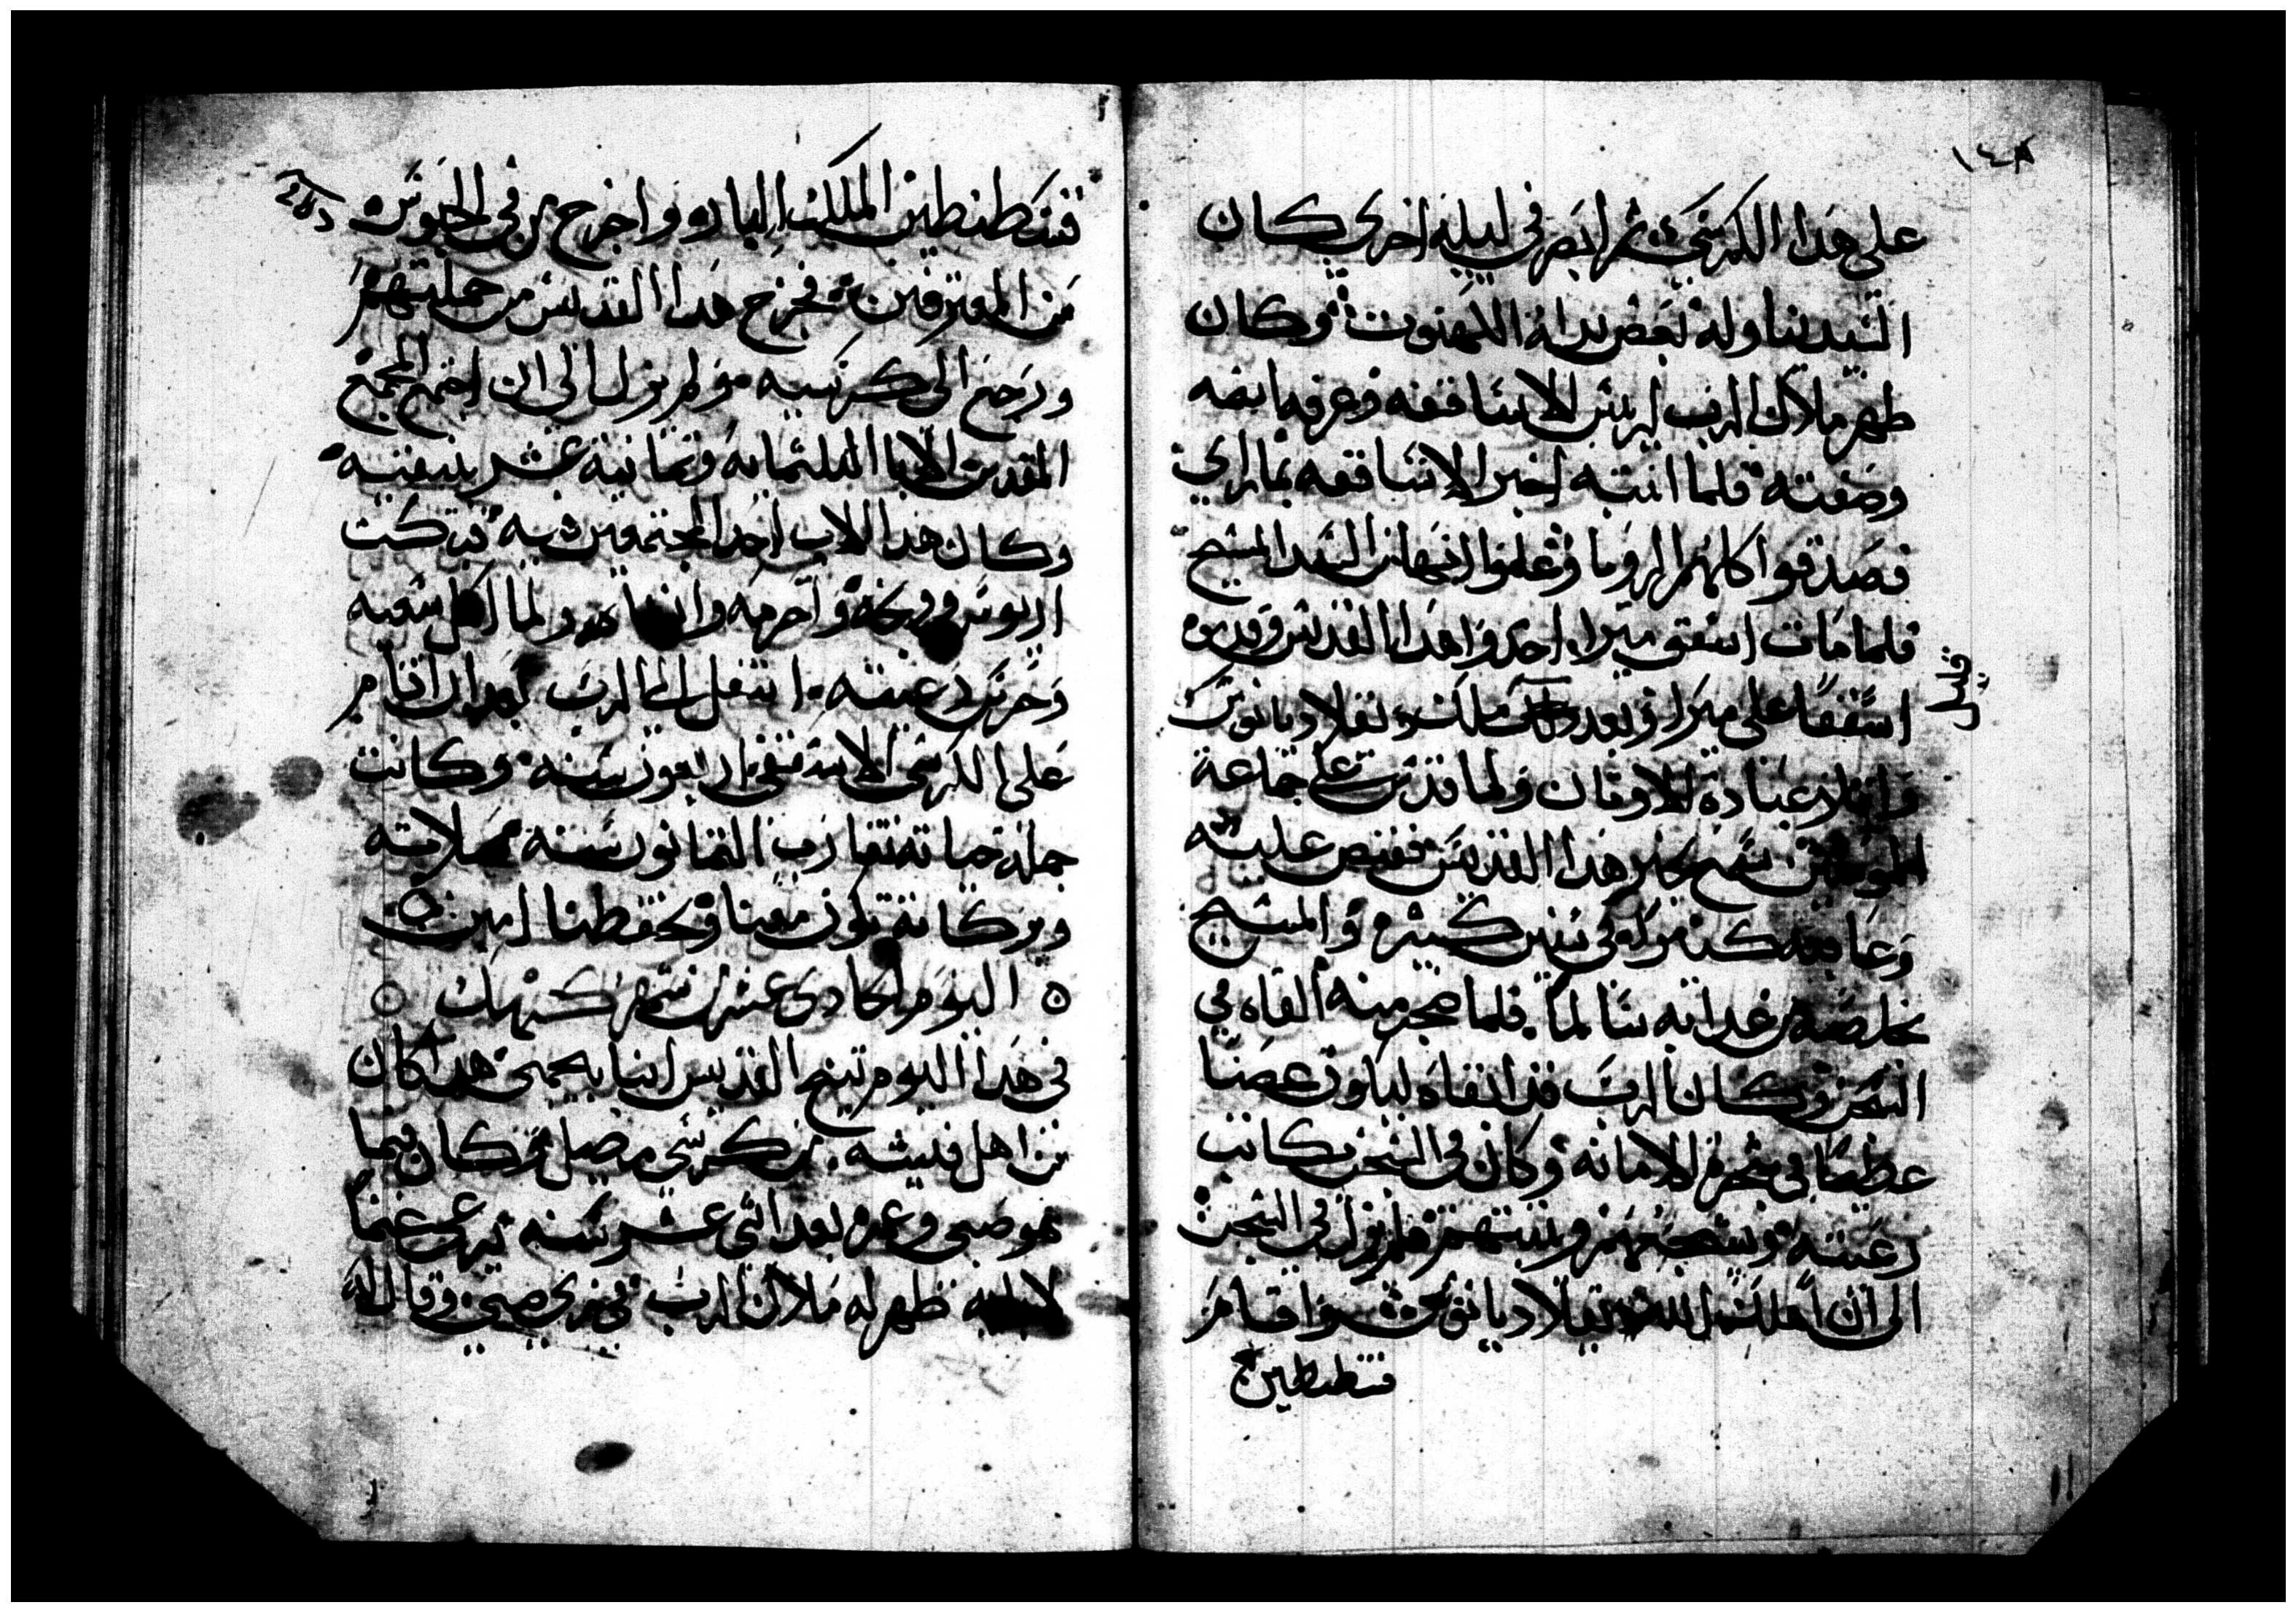 ١٤٨
على هدا الكرسي ثم ابصر في ليله اخري كان
السيد يناوله بعض بدلة الكهنوت وكان
ظهر ملاك الرب لريس الاساقفه وعرفه باسمه
وصفته فلما انتبه اخبر الاساقفه بما راي
فصدقوا كلهم الرويا وعلموا انها من السيد المسيح
فلما مات اسقف ميرا اخدوا هدا القديس وقدموه
اسقفا على ميرا وبعد قليل ملك دقلاديانوس
واقام عبادة الاوتان ولما قدر على جماعة
المومنين سمع بخبر هدا القديس فقبض عليه
وعاقبه كتيرا في سنين كثيره والمسيح
يخلصه من عداته سالما فلما ضجر منه القاه في
السجن وكان الرب قد ابقاه ليكون غصنا
عظيما في شجرة الامانه وكان في السجن يكاتب
رعيته ويشجعهم ويثبتهم فلم يزل في السجن
الى ان اهلك الله دقلاديانوس واقام
قسطنطين
قسطنطين الملك البار واخرج من في الحبوس
من المعترفين فخرج هدا القديس من جملتهم
ورجع الى كرسيه ولم يزل الى ان اجتمع المجمع
المقدس الابا التلتمايه وتمانية عشر بنيقيه
وكان هدا الاب احد المجتمعين فيه فبكت
اريوس ووبخه واحرمه ولما اكمل سعيه
وحرس رعيته انتقل الى الرب بعد ان اقام
على الكرسي الاسقفي اربعون سنه وكانت
جملة حياته تقارب التمانون سنه صلاته
وبركاته تكون معنا وتحفظنا امين
اليوم الحادي عشر من شهر كيهك
في هدا اليوم تنيح القديس انبا بجيمي هدا كان
من اهل فيشه من كرسي مصيل كان فيما
هو صبي وعمره بعد اتني عشر سنه يرعى غنما
لابيه ظهر له ملاك الرب في زي صبي وقال له